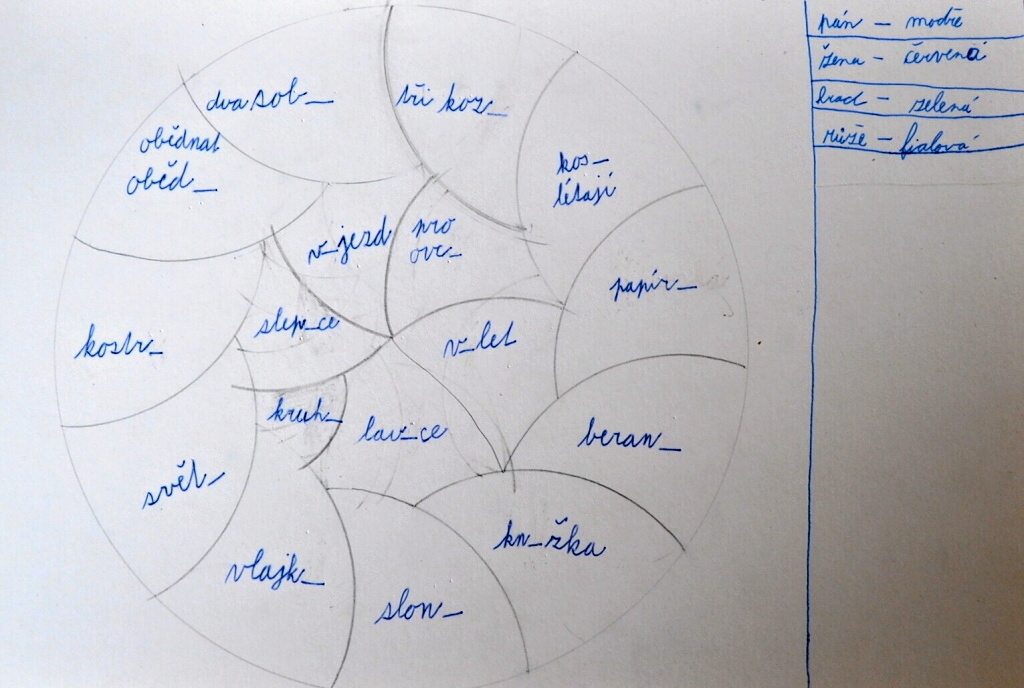 dva sob_
tři koz_
obědnat
oběd_
kos_
létají
v_jezd
pro
ovc_
papír_
slep_ce
kostr_
v_let
kruh_
lav_ce
beran_
svět_
kn_žka
vlajk_
slon_
pán – modře
žena – červená
hrad – zelená
růže – fialová